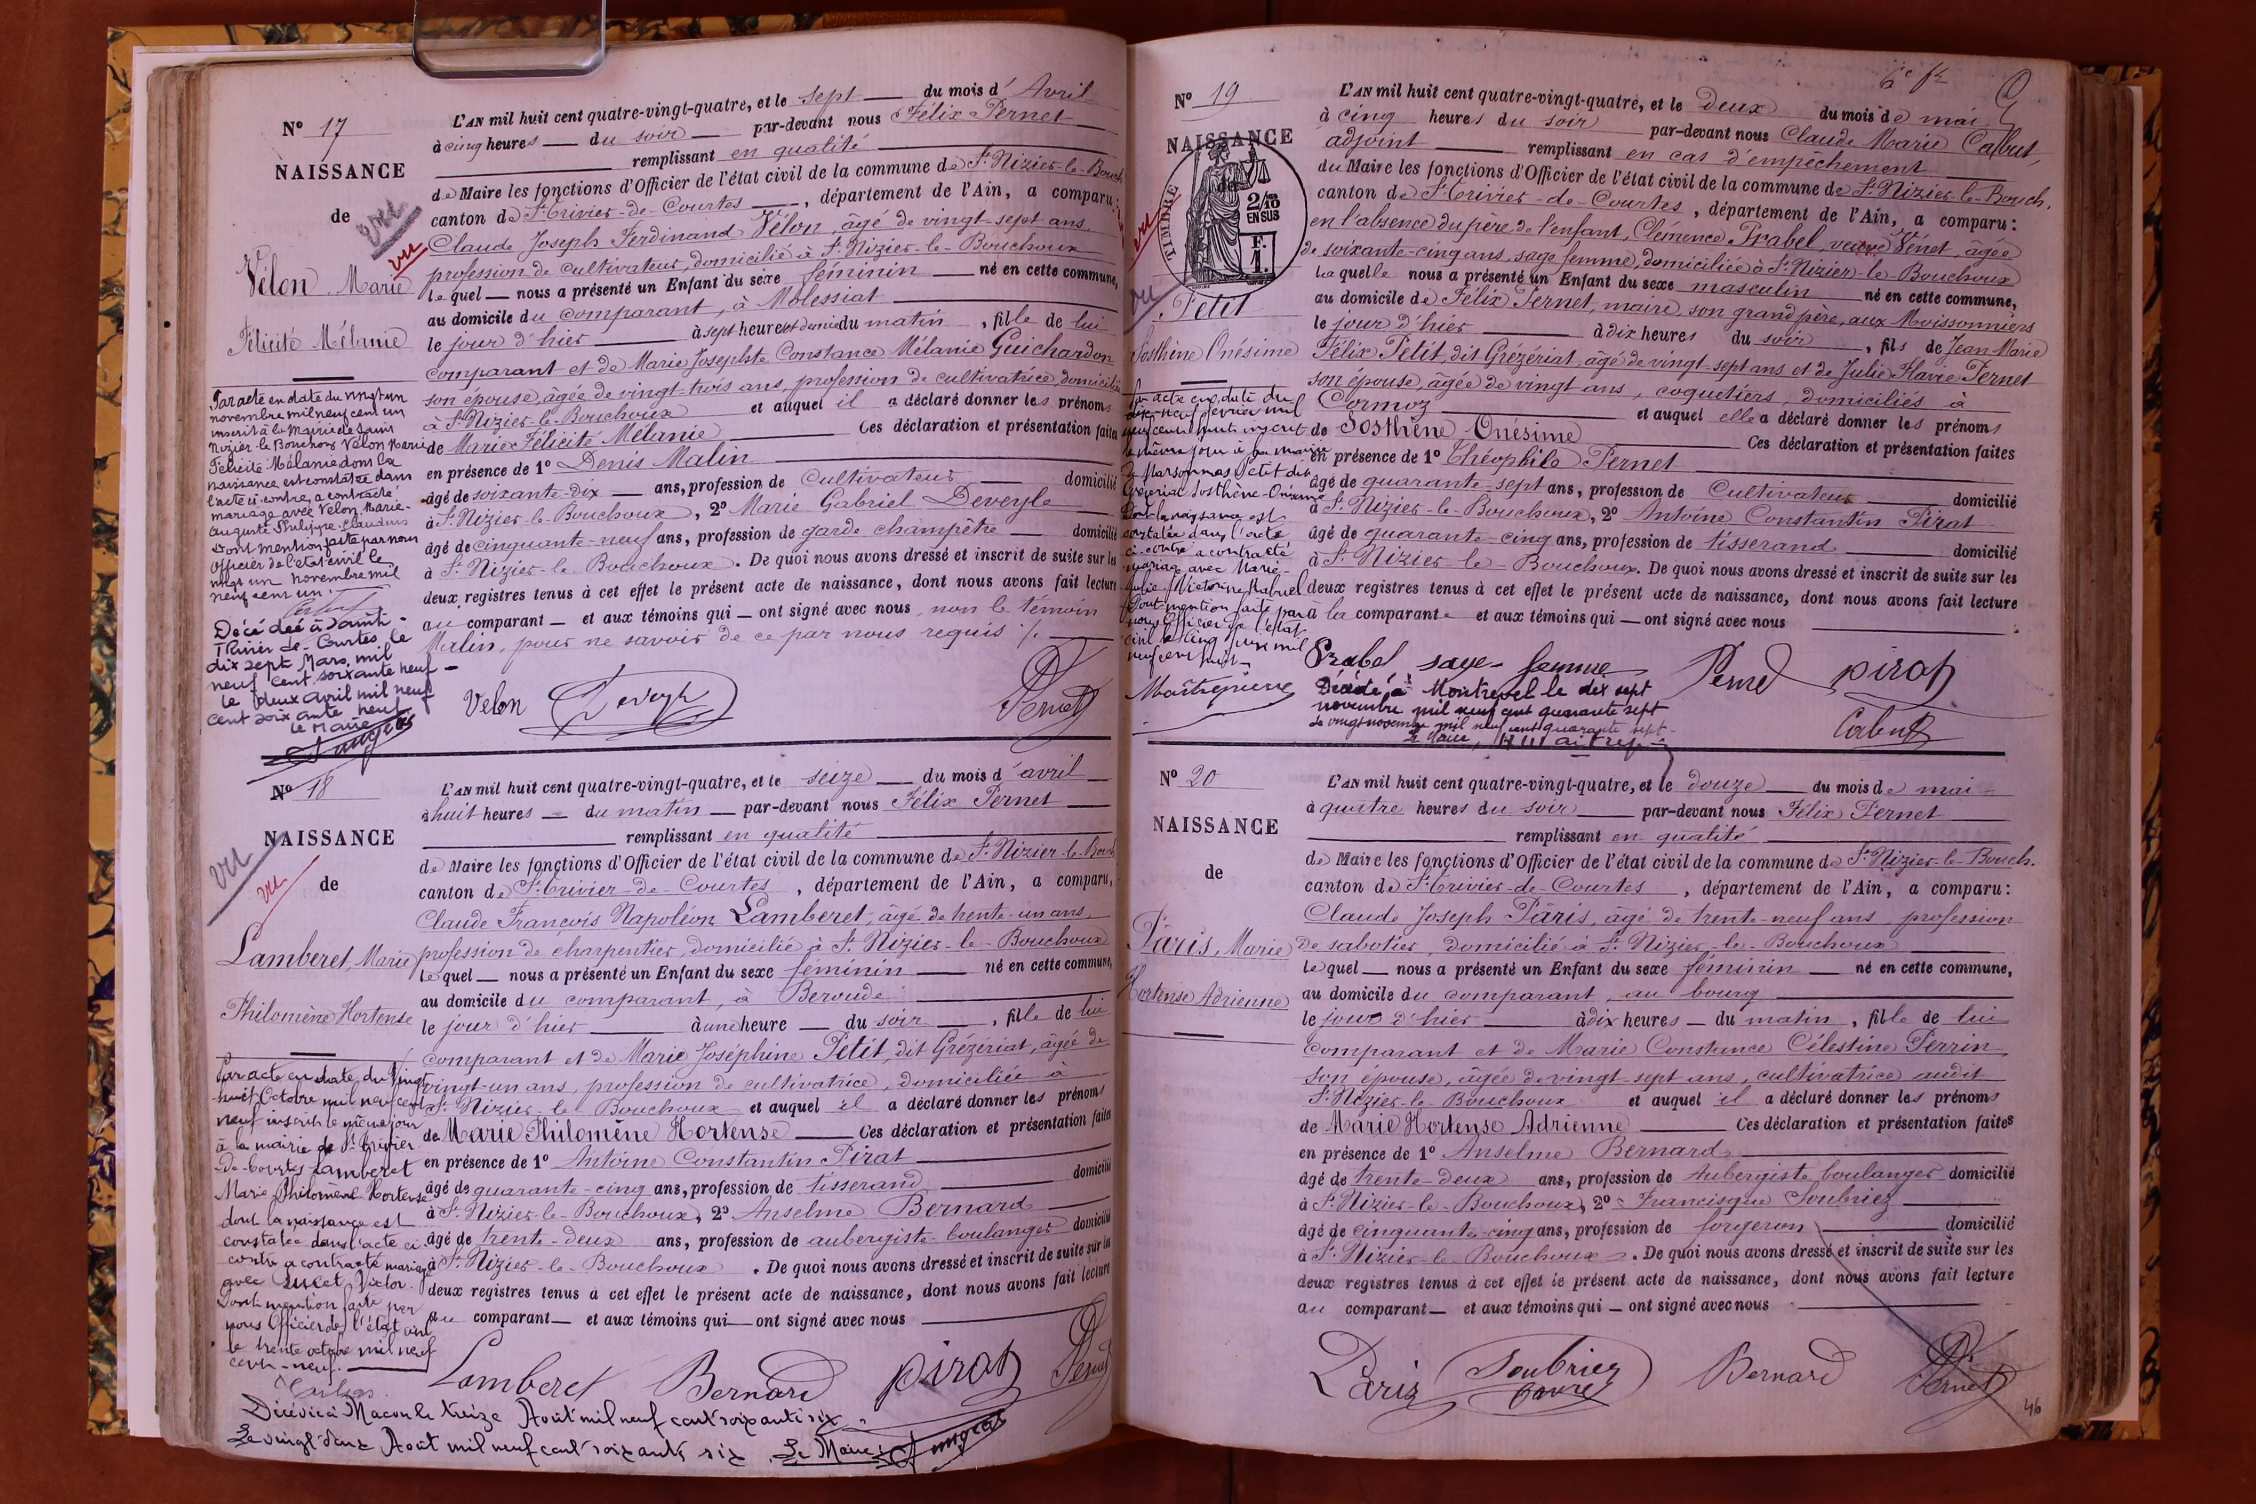 Nº 17
NAISSANCE
de
vu
vu
Vélon Marie
Félicité Mélanie
L'AN mil huit cent quatre-vingt-quatre, et le sept du mois d'Avril
à cinq heures du soir par-devant nous Félix Pernet
remplissant en qualité
de Maire les fonctions d'Officier de l'état civil de la commune de St Nizier-le-Bouch
canton de St Trivier-de-Courtes, département de l'Ain, a comparu:
Claude Joseph Ferdinand Vélon, âgé de vingt-sept ans
profession de cultivateur, domicilié à St Nizier-le-Bouchoux
lequel nous a présenté un Enfant du sexe féminin né en cette commune,
au domicile du comparant, à Molessiat
le jour d'hier à sept heures et demie du matin, fille de lui
comparant et de Marie Josephte Constance Mélanie Guichardon
son épouse, âgée de vingt-trois ans, profession de cultivatrice, domiciliée
à St Nizier-le-Bouchoux et auquel il a déclaré donner les prénoms
de Marie Félicité Mélanie Ces déclaration et présentation faites
en présence de 1º Denis Malin
âgé de soixante-dix ans, profession de Cultivateur domicilié
à St Nizier-le-Bouchoux, 2º Marie Gabriel Deveyle
âgé de cinquante-neuf ans, profession de garde champêtre domicilié
à St Nizier-le-Bouchoux. De quoi nous avons dressé et inscrit de suite sur les
deux registres tenus à cet effet le présent acte de naissance, dont nous avons fait lecture
au comparant et aux témoins qui ont signé avec nous, non le témoin
Malin, pour ne savoir de ce par nous requis ./.
Velon Deveyle Pernet
Par acte en date du vingt un
novembre mil neuf cent un
inscrit à la Mairie de Saint
Nizier-le-Bouchoux Vélon Marie
Félicité Mélanie dont la
naissance est constatée dans
l'acte ci-contre, a contracté
mariage avec Velon Marie-
Auguste Philippe Claudius
Dont mention faite par nous
officier de l'état civil le
vingt un novembre mil
neuf cent un.
Décédée à Saint-
Trivier-de-Courtes, le
dix sept Mars mil
neuf cent soixante neuf -
le deux avril mil neuf
cent soixante neuf
Le Maire
Nº 18
NAISSANCE
de
vu
vu
Lamberet, Marie
Philomène Hortense
L'AN mil huit cent quatre-vingt-quatre, et le seize du mois d'avril
à huit heures du matin par-devant nous Félix Pernet
remplissant en qualité
de Maire les fonctions d'Officier de l'état civil de la commune de St Nizier-le-Bouch
canton de St Trivier-de-Courtes, département de l'Ain, a comparu,
Claude François Napoléon Lamberet, âgé de trente-un ans,
profession de charpentier, domicilié à St Nizier-le-Bouchoux
lequel nous a présenté un Enfant du sexe féminin né en cette commune,
au domicile du comparant, à Beroude
le jour d'hier à une heure du soir, fille de lui
comparant et de Marie Joséphine Petit, dit Grézériat, âgée de
vingt-un ans, profession de cultivatrice, domiciliée à
St Nizier-le-Bouchoux et auquel il a déclaré donner les prénoms
de Marie Philomène Hortense Ces déclaration et présentation faites
en présence de 1º Antoine Constantin Pirat
âgé de quarante-cinq ans, profession de tisserand domicilié
à St Nizier-le-Bouchoux, 2º Anselme Bernard
âgé de trente-deux ans, profession de aubergiste-boulanger domicilié
à St Nizier-le-Bouchoux. De quoi nous avons dressé et inscrit de suite sur les
deux registres tenus à cet effet le présent acte de naissance, dont nous avons fait lecture
au comparant et aux témoins qui ont signé avec nous
Lamberet Bernard Pirat Pernet
Par acte en date du Vingt
huit Octobre mil neuf cent
neuf inscrit le même jour
à la mairie de St Trivier
de-Courtes Lamberet
Marie Philomène Hortense
dont la naissance est
constatée dans l'acte ci-
contre a contracté mariage
avec Victor.
Dont mention faite par
nous Officier de l'état civil
le trente octobre mil neuf
cent-neuf.
Décédée à Macon le treize Août mil neuf cent soixante six.
Le vingt deux Août mil neuf cent soixante six Le Maire:
6e ft
Nº 19
NAISSANCE
de
TIMBRE
2/10
EN SUS
F.
1.
vu
vu
Petit
Sosthène Onésime
L'AN mil huit cent quatre-vingt-quatre, et le deux du mois de mai
à cinq heures du soir par-devant nous Claude Marie Calbut,
adjoint remplissant en cas d'empêchement
du Maire les fonctions d'Officier de l'état civil de la commune de St Nizier-le-Bouch.
canton de St Trivier-de-Courtes, département de l'Ain, a comparu:
en l'absence du père de l'enfant, Clémence Prabel veuve Vénet, âgée
de soixante-cinq ans, sage femme, domiciliée à St Nizier-le-Bouchoux
laquelle nous a présenté un Enfant du sexe masculin né en cette commune,
au domicile de Félix Pernet, maire, son grand père, aux Moissonniers
le jour d'hier à dix heures du soir, fils de Jean Marie
Félix Petit, dit Grézériat, âgé de vingt-sept ans et de Julie Flavie Pernet
son épouse, âgée de vingt ans, coquetiers, domiciliés à
Cormoz et auquel elle a déclaré donner les prénoms
de Sosthène Onésime Ces déclaration et présentation faites
en présence de 1º Théophile Pernet
âgé de quarante-sept ans, profession de Cultivateur domicilié
à St Nizier-le-Bouchoux, 2º Antoine Constantin Pirat
âgé de quarante-cinq ans, profession de tisserand domicilié
à St Nizier-le-Bouchoux. De quoi nous avons dressé et inscrit de suite sur les
deux registres tenus à cet effet le présent acte de naissance, dont nous avons fait lecture
à la comparante et aux témoins qui ont signé avec nous
Prabel sage-femme Pernet Pirat
Par acte en date du
dix-neuf février mil
neuf cent huit inscrit
le même jour à la mairie
de Marsonnas Petit dit
Grézériat Sosthène-Onésime
dont la naissance est
constatée dans l'acte
ci-contre a contracté
mariage avec Marie-
Julie Victorine
Dont mention faite par
nous Officier de l'état
civil le cinq mil
neuf cent huit
Décédé à Montrevel le dix sept
novembre mil neuf cent quarante sept
Le vingt novembre mil neuf cent quarante sept
Le Maire,
Nº 20
NAISSANCE
de
Pâris, Marie
Hortense Adrienne
L'AN mil huit cent quatre-vingt-quatre, et le douze du mois de mai
à quatre heures du soir par-devant nous Félix Pernet
remplissant en qualité
de Maire les fonctions d'Officier de l'état civil de la commune de St Nizier-le-Bouch.
canton de St Trivier-de-Courtes, département de l'Ain, a comparu:
Claude Joseph Pâris, âgé de trente-neuf ans, profession
de sabotier, domicilié à St Nizier-le-Bouchoux
lequel nous a présenté un Enfant du sexe féminin né en cette commune,
au domicile du comparant, au bourg
le jour d'hier à dix heures du matin, fille de lui
comparant et de Marie Constance Célestine Perrin,
son épouse, âgée de vingt-sept ans, cultivatrice audit
St Nizier-le-Bouchoux et auquel il a déclaré donner les prénoms
de Marie Hortense Adrienne Ces déclaration et présentation faites
en présence de 1º Anselme Bernard
âgé de trente-deux ans, profession de Aubergiste boulanger domicilié
à St Nizier-le-Bouchoux, 2º Francisque Soubriez
âgé de cinquante-cinq ans, profession de forgeron domicilié
à St Nizier-le-Bouchoux. De quoi nous avons dressé et inscrit de suite sur les
deux registres tenus à cet effet le présent acte de naissance, dont nous avons fait lecture
au comparant et aux témoins qui ont signé avec nous
Pâris Soubriez Bernard Pernet
46